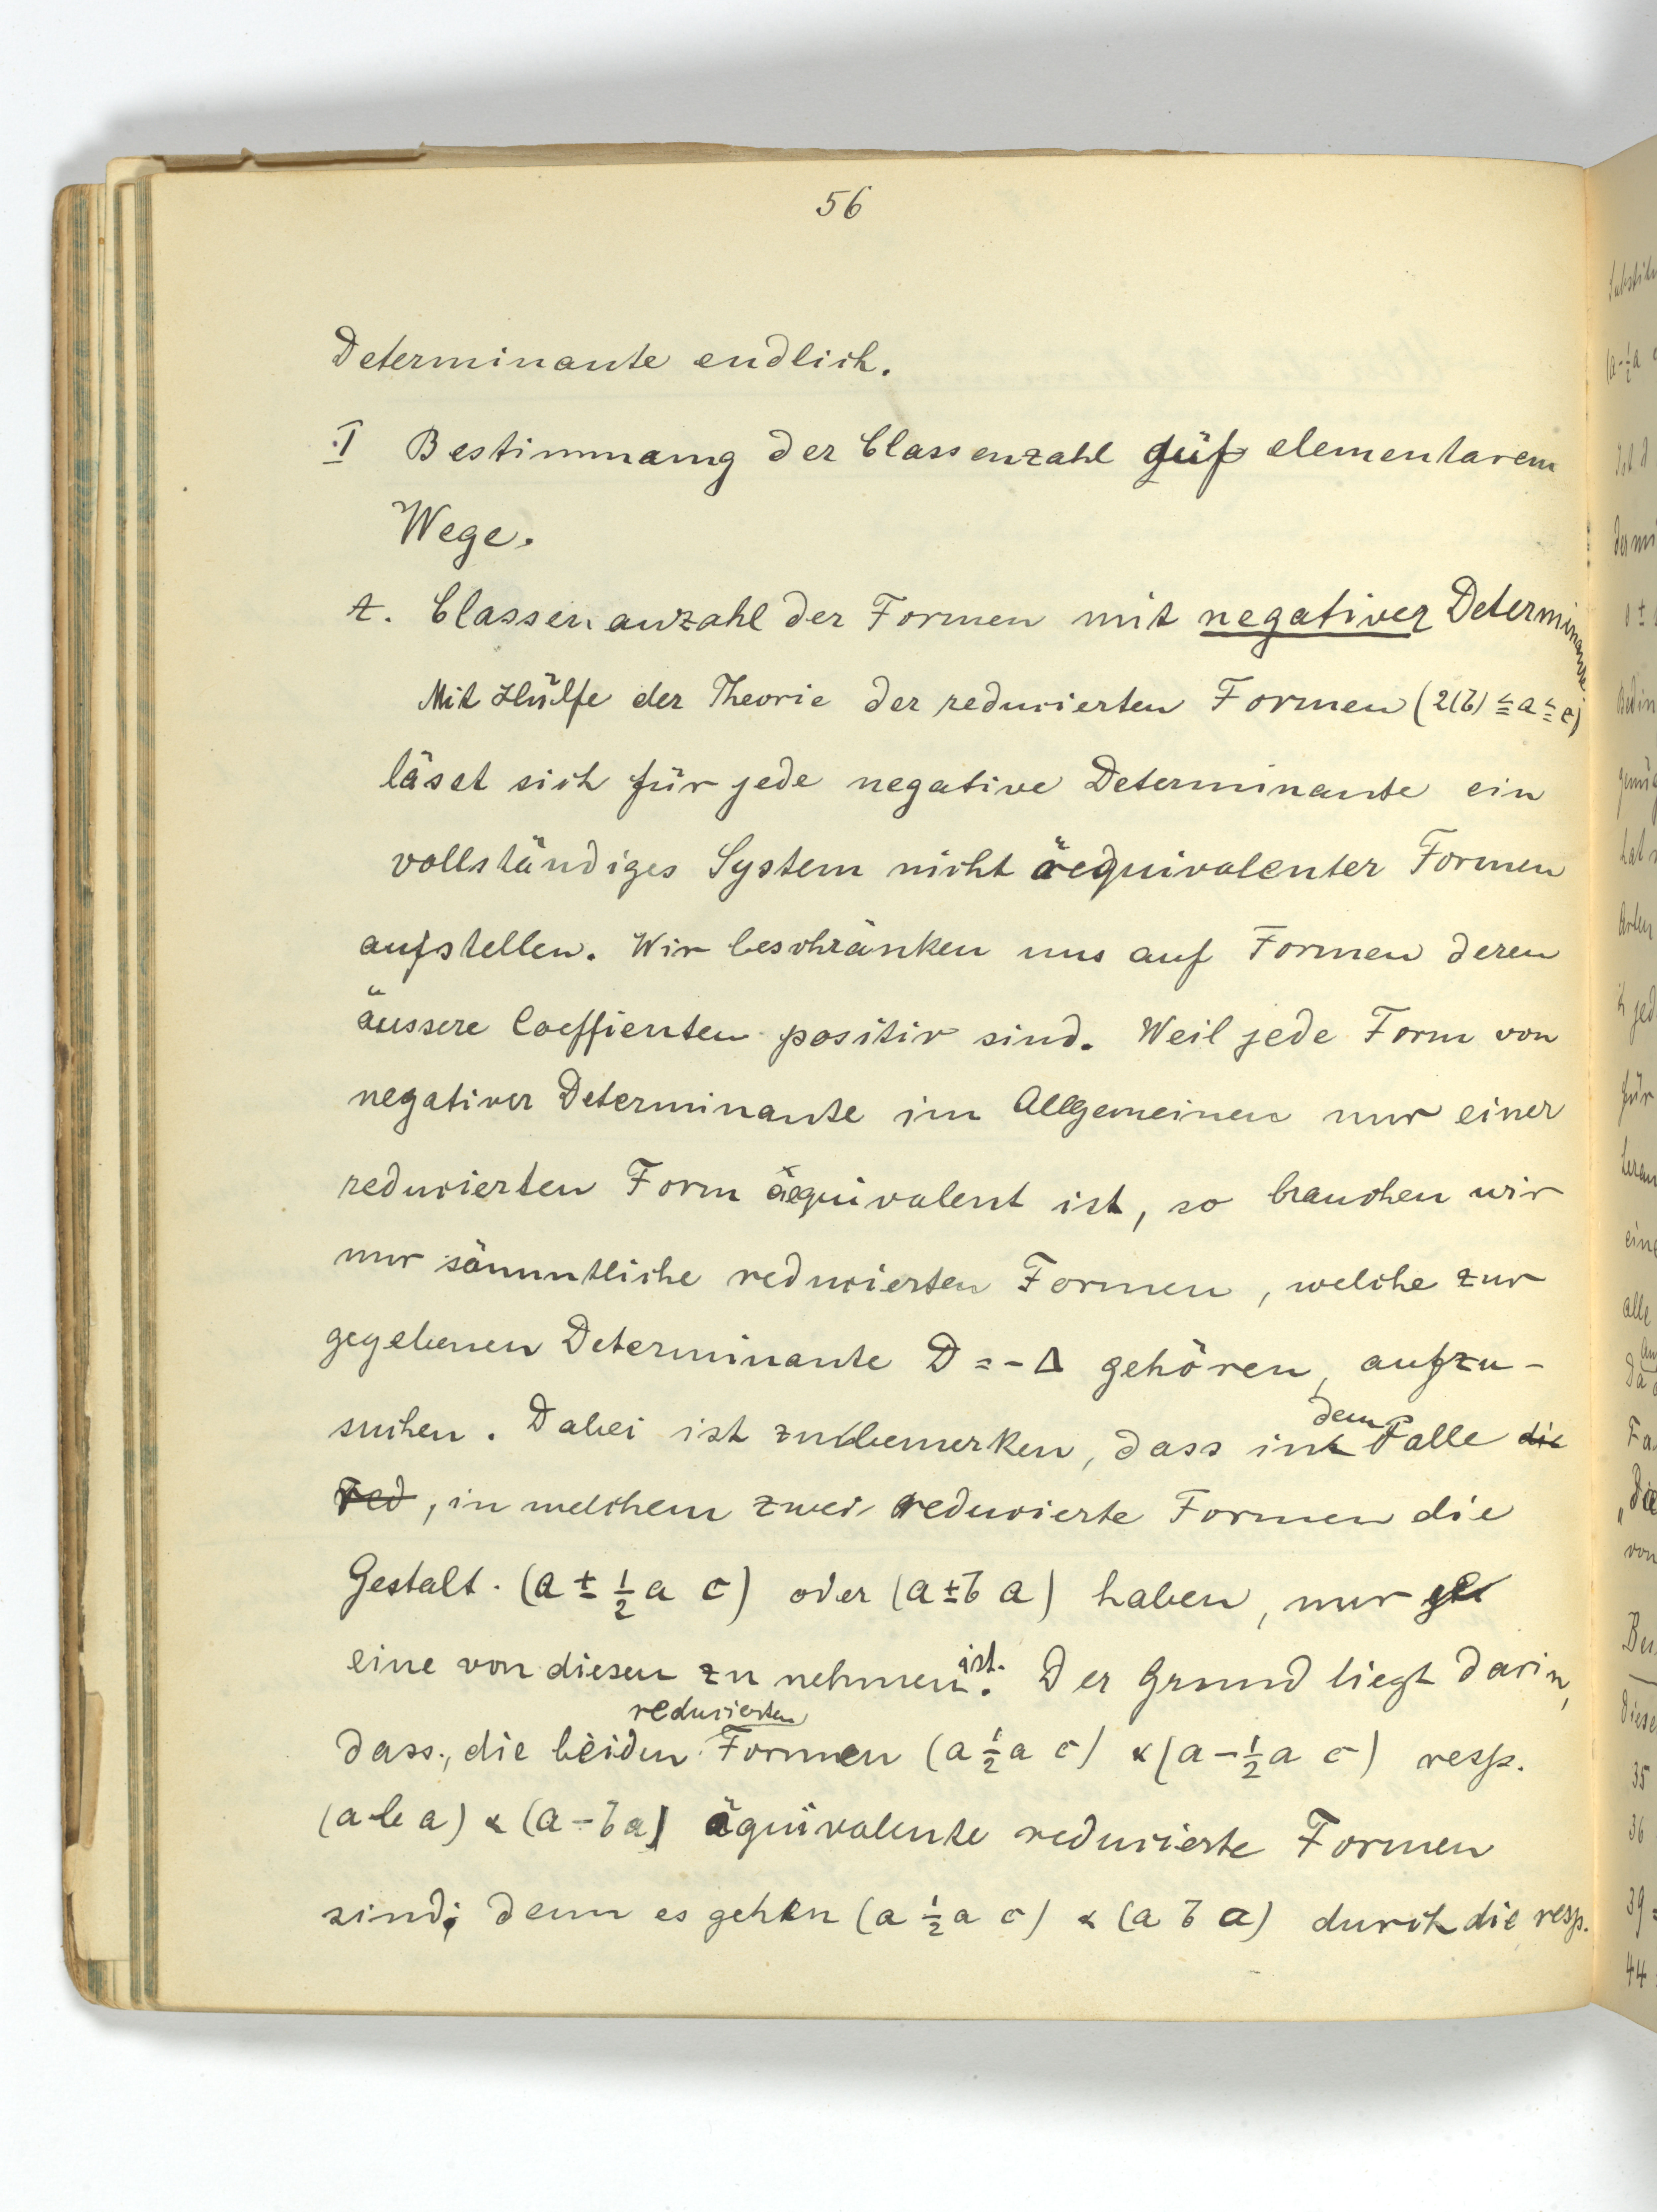 56
Determinante endlich.
I Bestimmung der Classenzahl auf elementarem
Wege.
A. Classenanzahl der Formen mit negativer Determinante
Mit Hülfe der Theorie der reducierten Formen (2(b) ≦ a ≦ c)
lässt sich für jede negative Determinante ein
vollständiges System nicht äequivalenter Formen
aufstellen. Wir beschränken uns auf Formen deren
äussere Coeffienten positiv sind. Weil jede Form von
negativer Determinante im Allgemeinen nur einer
reducierten Form äequivalent ist, so brauchen wir
nur sämmtliche reducierten Formen, welche zur
gegebenen Determinante D = -Δ gehören, aufzu-
suchen. Dabei ist zu bemerken, dass in dem Falle die
red, in welchem zwei reducierte Formen die
Gestalt (a ± ½ a c) oder (a ± b a) haben, nur
eine von diesen zu nehmen ist. Der Grund liegt darin,
dass, die beiden reducierten Formen (a ½ a c) & (a - ½ a c) resp.
(a b a) & (a - b a) äquivalente reducierte Formen
sind; denn es gehen (a ½ a c) & (a b a) durch die resp.